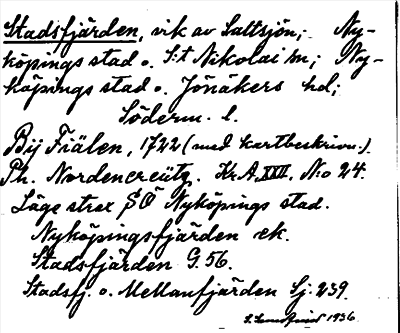 Stadsfjärden, vik av Saltsjön; Ny-
köpings stad o. S:t Nikolai sn; Ny-
köpings stad o. Jönåkers hd;
Söderm. l.
Bij Fiälen, 1722 (med kartbeskrivn.).
Ph. Nordencreütz. Kr.A. XXII, N:o 24.
Läge strax SÖ Nyköpings stad.
Nyköpingsfjärden ek.
Stadsfjärden G. 56.
Stadsfj. o. Mellanfjärden Sj. 239.
1936